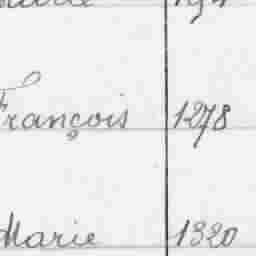 François 1278
Marie 1320